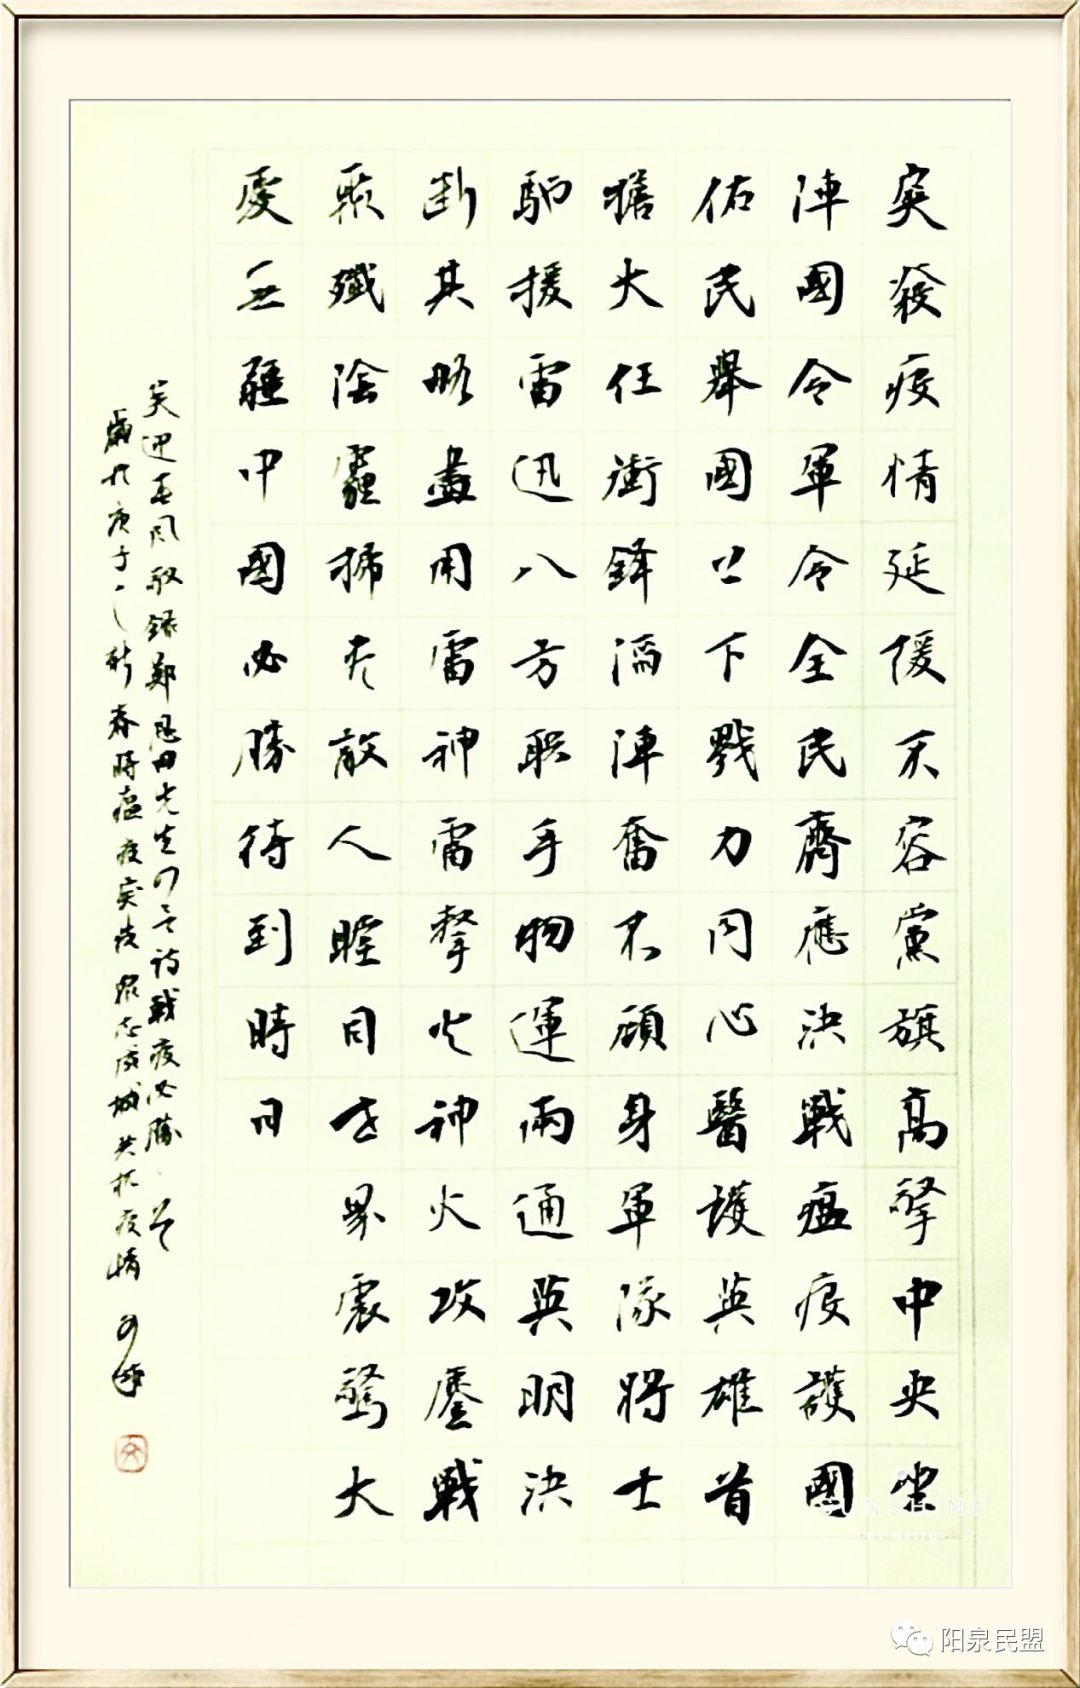 突發疫情延緩不容黨旗高擎中央坐
陣國令軍令全民齊應決戰瘟疫護國
佑民舉國上下戮力同心醫護英雄首
擔大任衝鋒陷陣奮不顧身軍隊將士
馳援雷迅八方联手物運兩通英明決
断其略盡用雷神雷擊火神火攻鏖戰
聚殲陰霾掃光敵人瞠目世界震驚大
愛無疆中國必勝待到時日
笑迎春風敬錄鄭恩田先生四言詩戰疫必勝一首
歲於庚子新春時瘟疫突發眾志成城共抗疫情
阳泉民盟